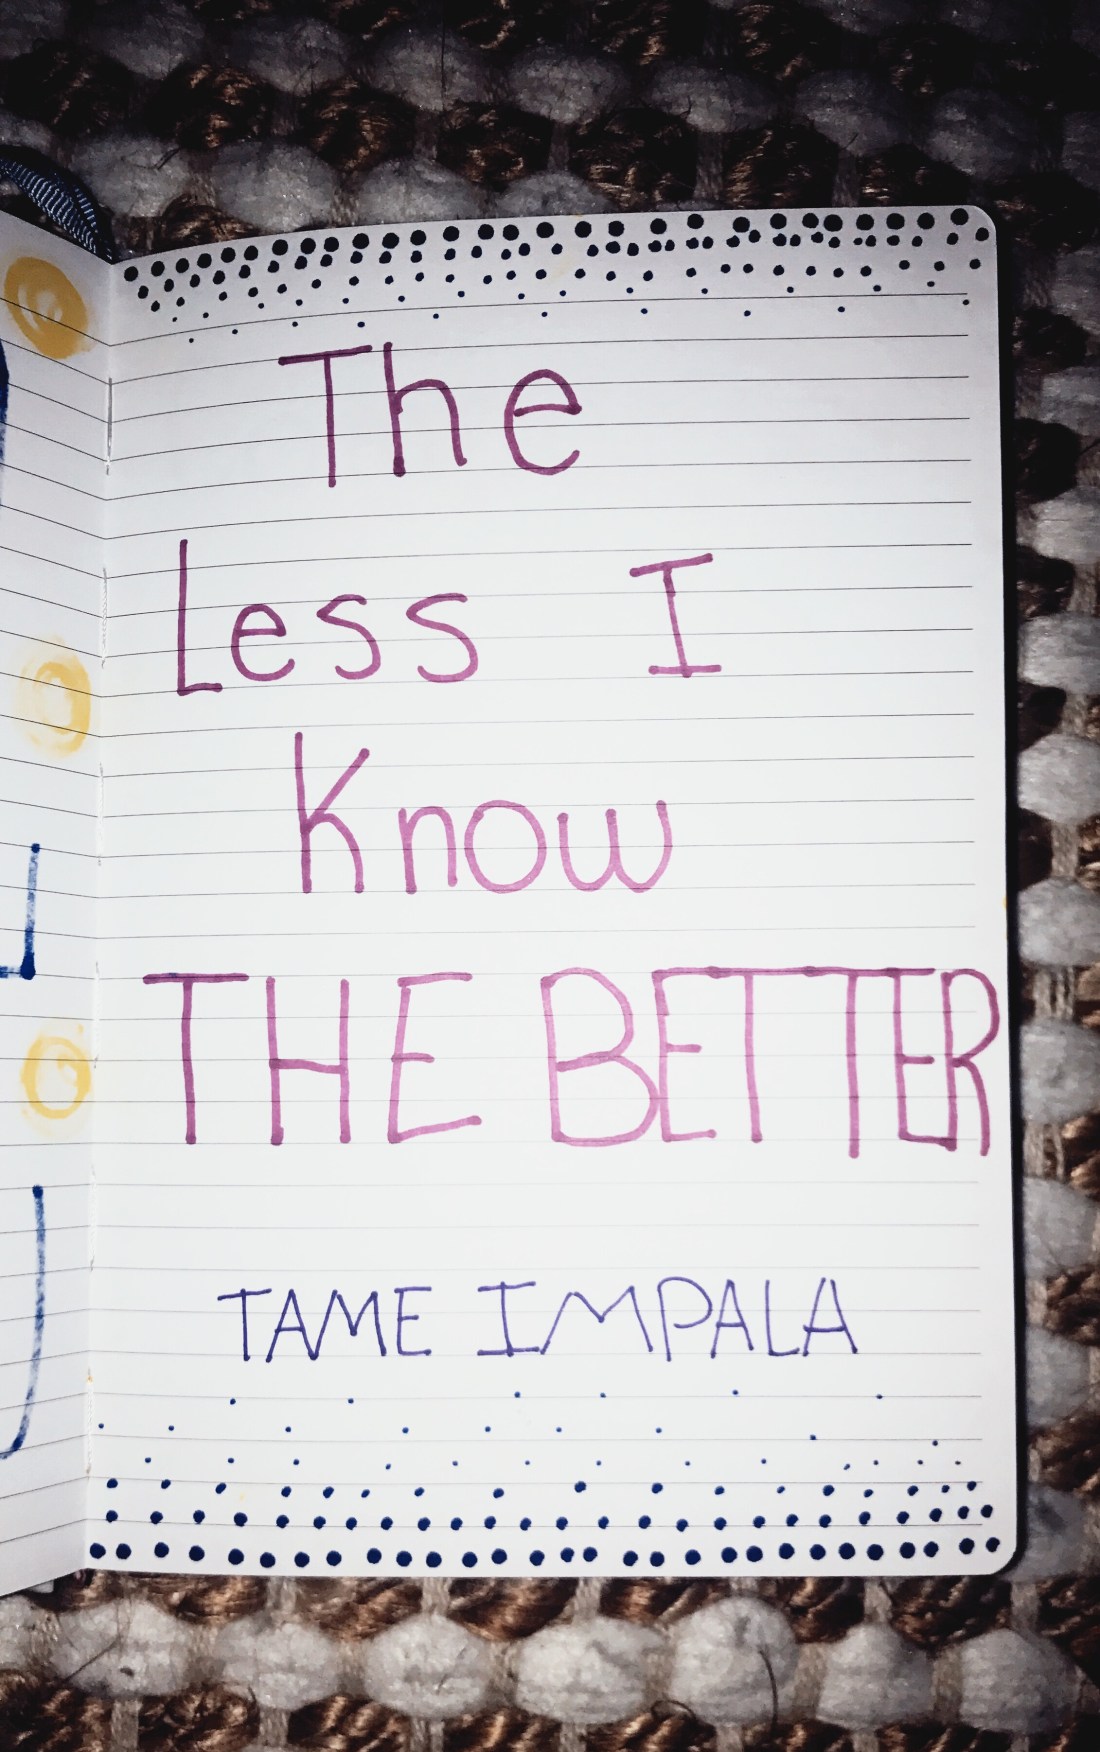 The
Less I
Know
THE BETTER
TAME IMPALA